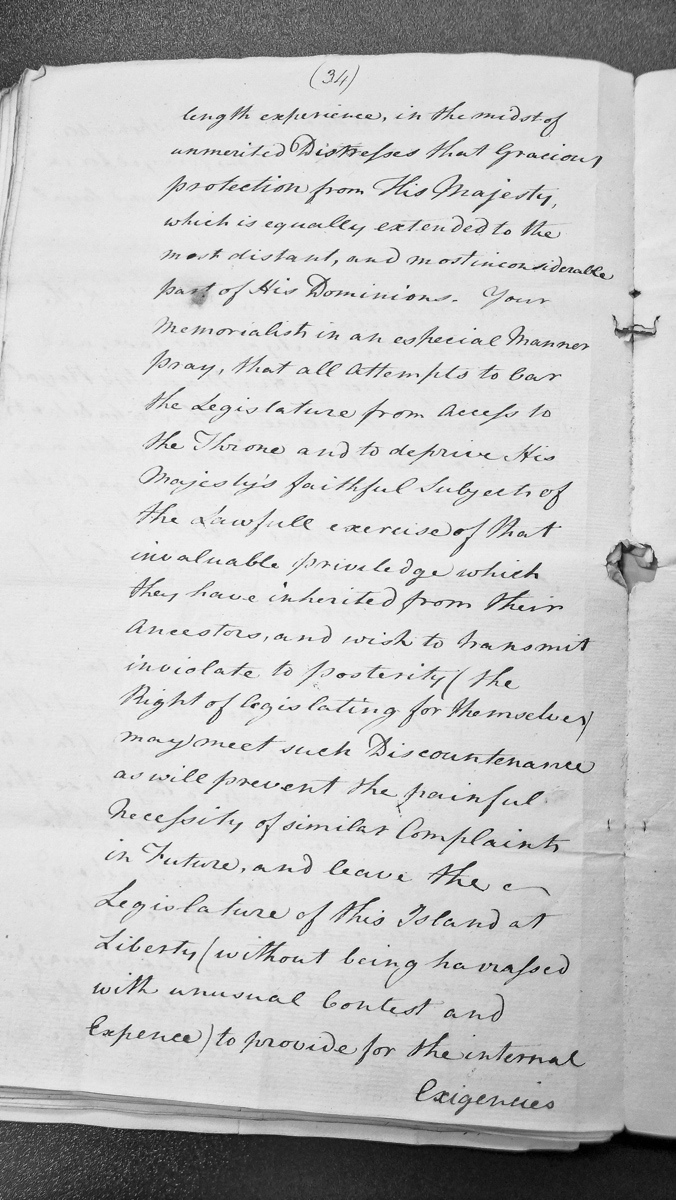 (34)
length experience, in the midst of
unmerited Distresses that Gracious
protection from His Majesty,
which is equally extended to the
most distant, and most inconsiderable
part of His Dominions. Your
Memorialists in an especial Manner
pray, that all Attempts to bar
the Legislature from Access to
the Throne and to deprive His
Majesty's faithful Subjects of
the Lawfull exercise of that
invaluable priviledge which
they have inherited from their
Ancestors, and wish to transmit
inviolate to posterity (the
Right of legislating for themselves)
may meet such Discountenance
as will prevent the painful
Necessity of similar Complaints
in Future, and leave the
Legislature of this Island at
Liberty (without being harrassed
with unusual Contest and
Expence) to provide for the internal
Exigencies